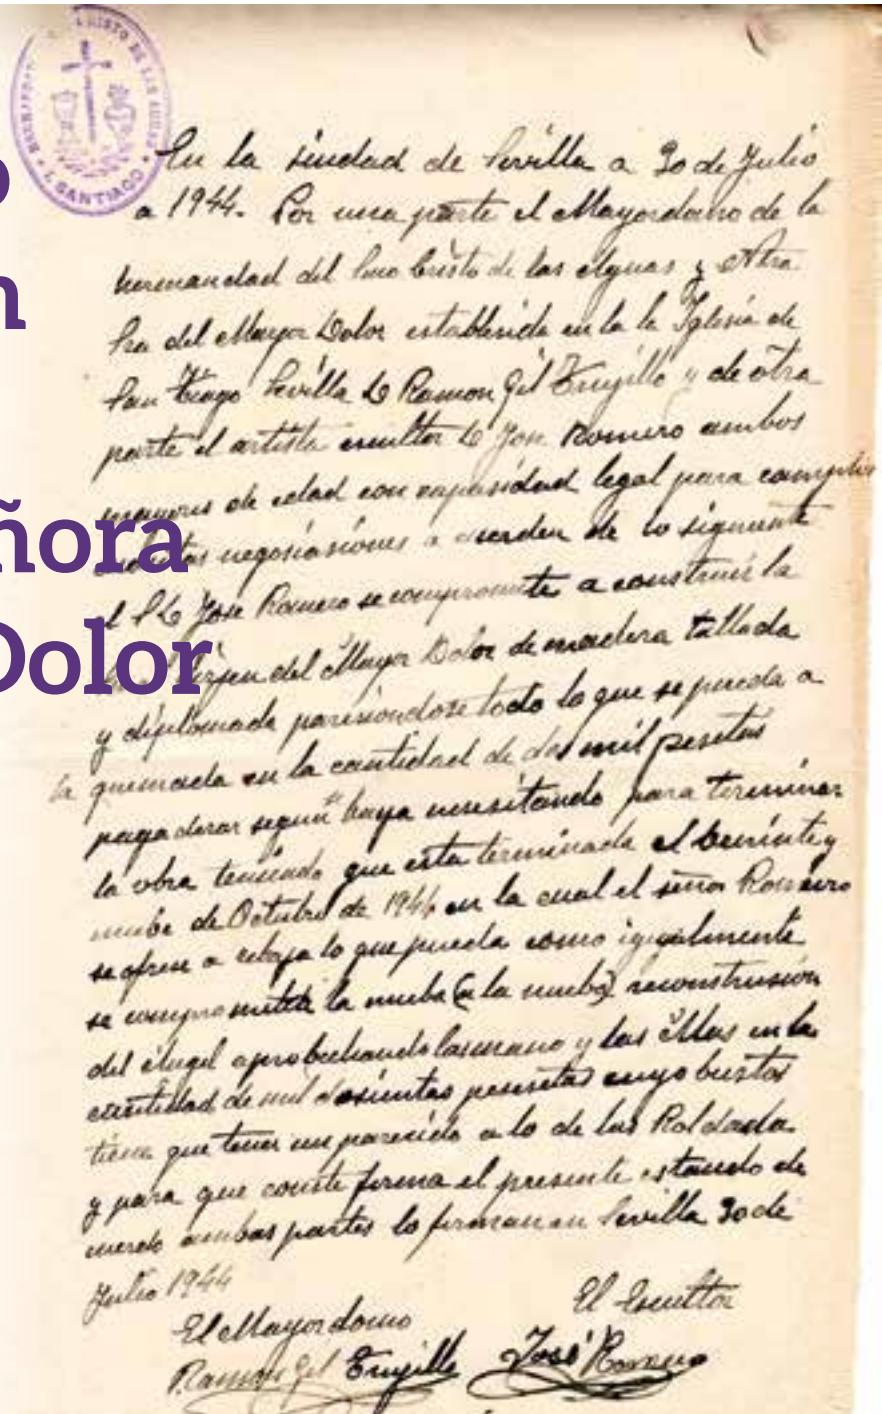 HERMANDAD CRISTO DE LAS AGUAS
SANTIAGO
o
n
ñora
Dolor
En la siudad de Sevilla a 30 de Julio
a 1944. Por una parte el Mayordomo de la
hermandad del Smo Cristo de las Aguas y Ntra
Sra del Mayor Dolor establesida en la Iglesia de
San Tiago Sevilla D Ramon Gil Trujillo y de otra
parte el artista escultor D Jose Romero ambos
mayores de edad con capasidad legal para cumplir
negosiasiones a de lo siguiente
el S D Jose Romero se compromete a construir la
Virjen del Mayor Dolor de madera tallada
y diplomada paresiendose todo lo que se pueda a
la quemada en la cantidad de dos mil pesetas
pagaderas segun haya nesesitando para terminar
la obra teniendo que esta terminada el beinte y
nuebe de Octubre de 1944 en la cual el señor Romero
se ofrese a rebaja lo que pueda como igualmente
se compromete la nueba (a la nueba) reconstrusion
del Angel aprobechando las mano y las Alas en la
cantidad de mil dosientas pesetas cuyo bustos
tiene que tener un paresido a lo de las Roldada
y para que conste firma el presente estando de
ambas partes lo firman en Sevilla 30 de
Julio 1944
El Mayordomo El Escultor
Ramon Gil Trujillo José Romero